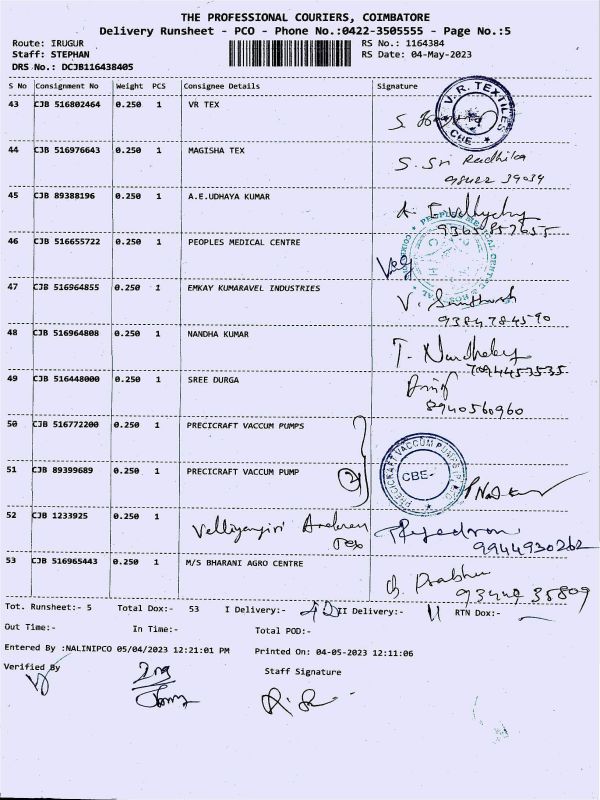 THE PROFESSIONAL COURIERS, COIMBATORE
Delivery Runsheet - PCO - Phone No.:0422-3505555 - Page No.:5
Route: IRUGUR RS No.: 1164384
Staff: STEPHAN RS Date: 04-May-2023
DRS No.: DCJB116438405
S No Consignment No Weight PCS Consignee Details Signature
43 CJB 516802464 0.250 1 VR TEX
V.R. TEXTILES CBE-
44 CJB 516976643 0.250 1 MAGISHA TEX S. Sri Radhika
98422 39039
45 CJB 89388196 0.250 1 A.E.UDHAYA KUMAR
9365857655
46 CJB 516655722 0.250 1 PEOPLES MEDICAL CENTRE
47 CJB 516964855 0.250 1 EMKAY KUMARAVEL INDUSTRIES
9384784590
48 CJB 516964808 0.250 1 NANDHA KUMAR
7094453535
49 CJB 516448000 0.250 1 SREE DURGA
8940560960
50 CJB 516772200 0.250 1 PRECICRAFT VACCUM PUMPS
51 CJB 89399689 0.250 1 PRECICRAFT VACCUM PUMP
PRECICRAFT VACCUM PUMPS (P) LTD CBE-
52 CJB 1233925 0.250 1 Velliyangiri
Tex 9944930262
53 CJB 516965443 0.250 1 M/S BHARANI AGRO CENTRE G. Prabhu
93442 35809
Tot. Runsheet:- 5 Total Dox:- 53 I Delivery:- II Delivery:- 11 RTN Dox:-
Out Time:- In Time:- Total POD:-
Entered By :NALINIPCO 05/04/2023 12:21:01 PM Printed On: 04-05-2023 12:11:06
Verified By Staff Signature